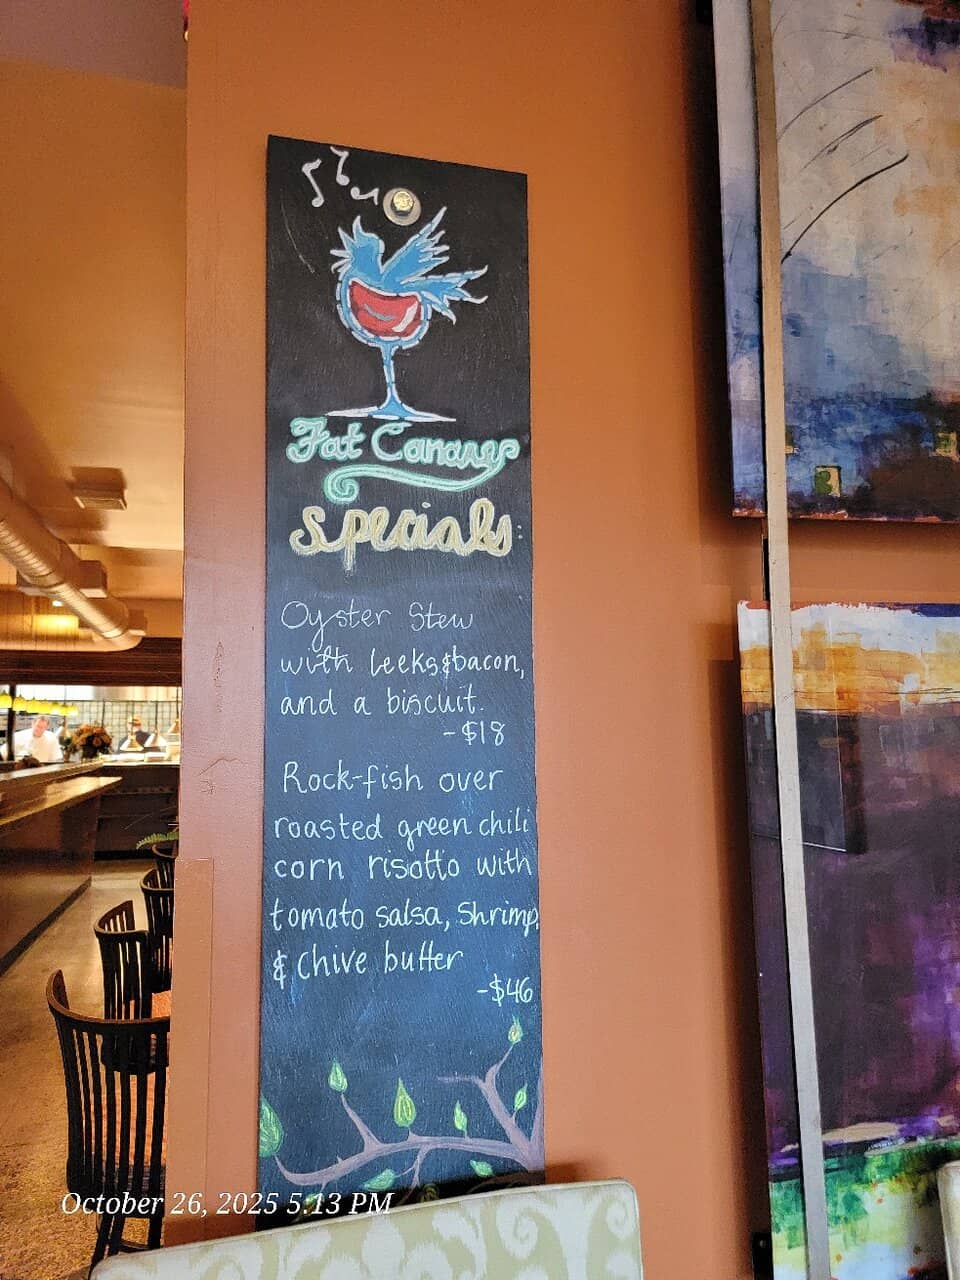 Fat Canary
Specials:
Oyster Stew
with leeks&bacon,
and a biscuit.
-$18
Rock-fish over
roasted green chili
corn risotto with
tomato salsa, Shrimp,
& Chive butter
-$46
October 26, 2025 5:13 PM